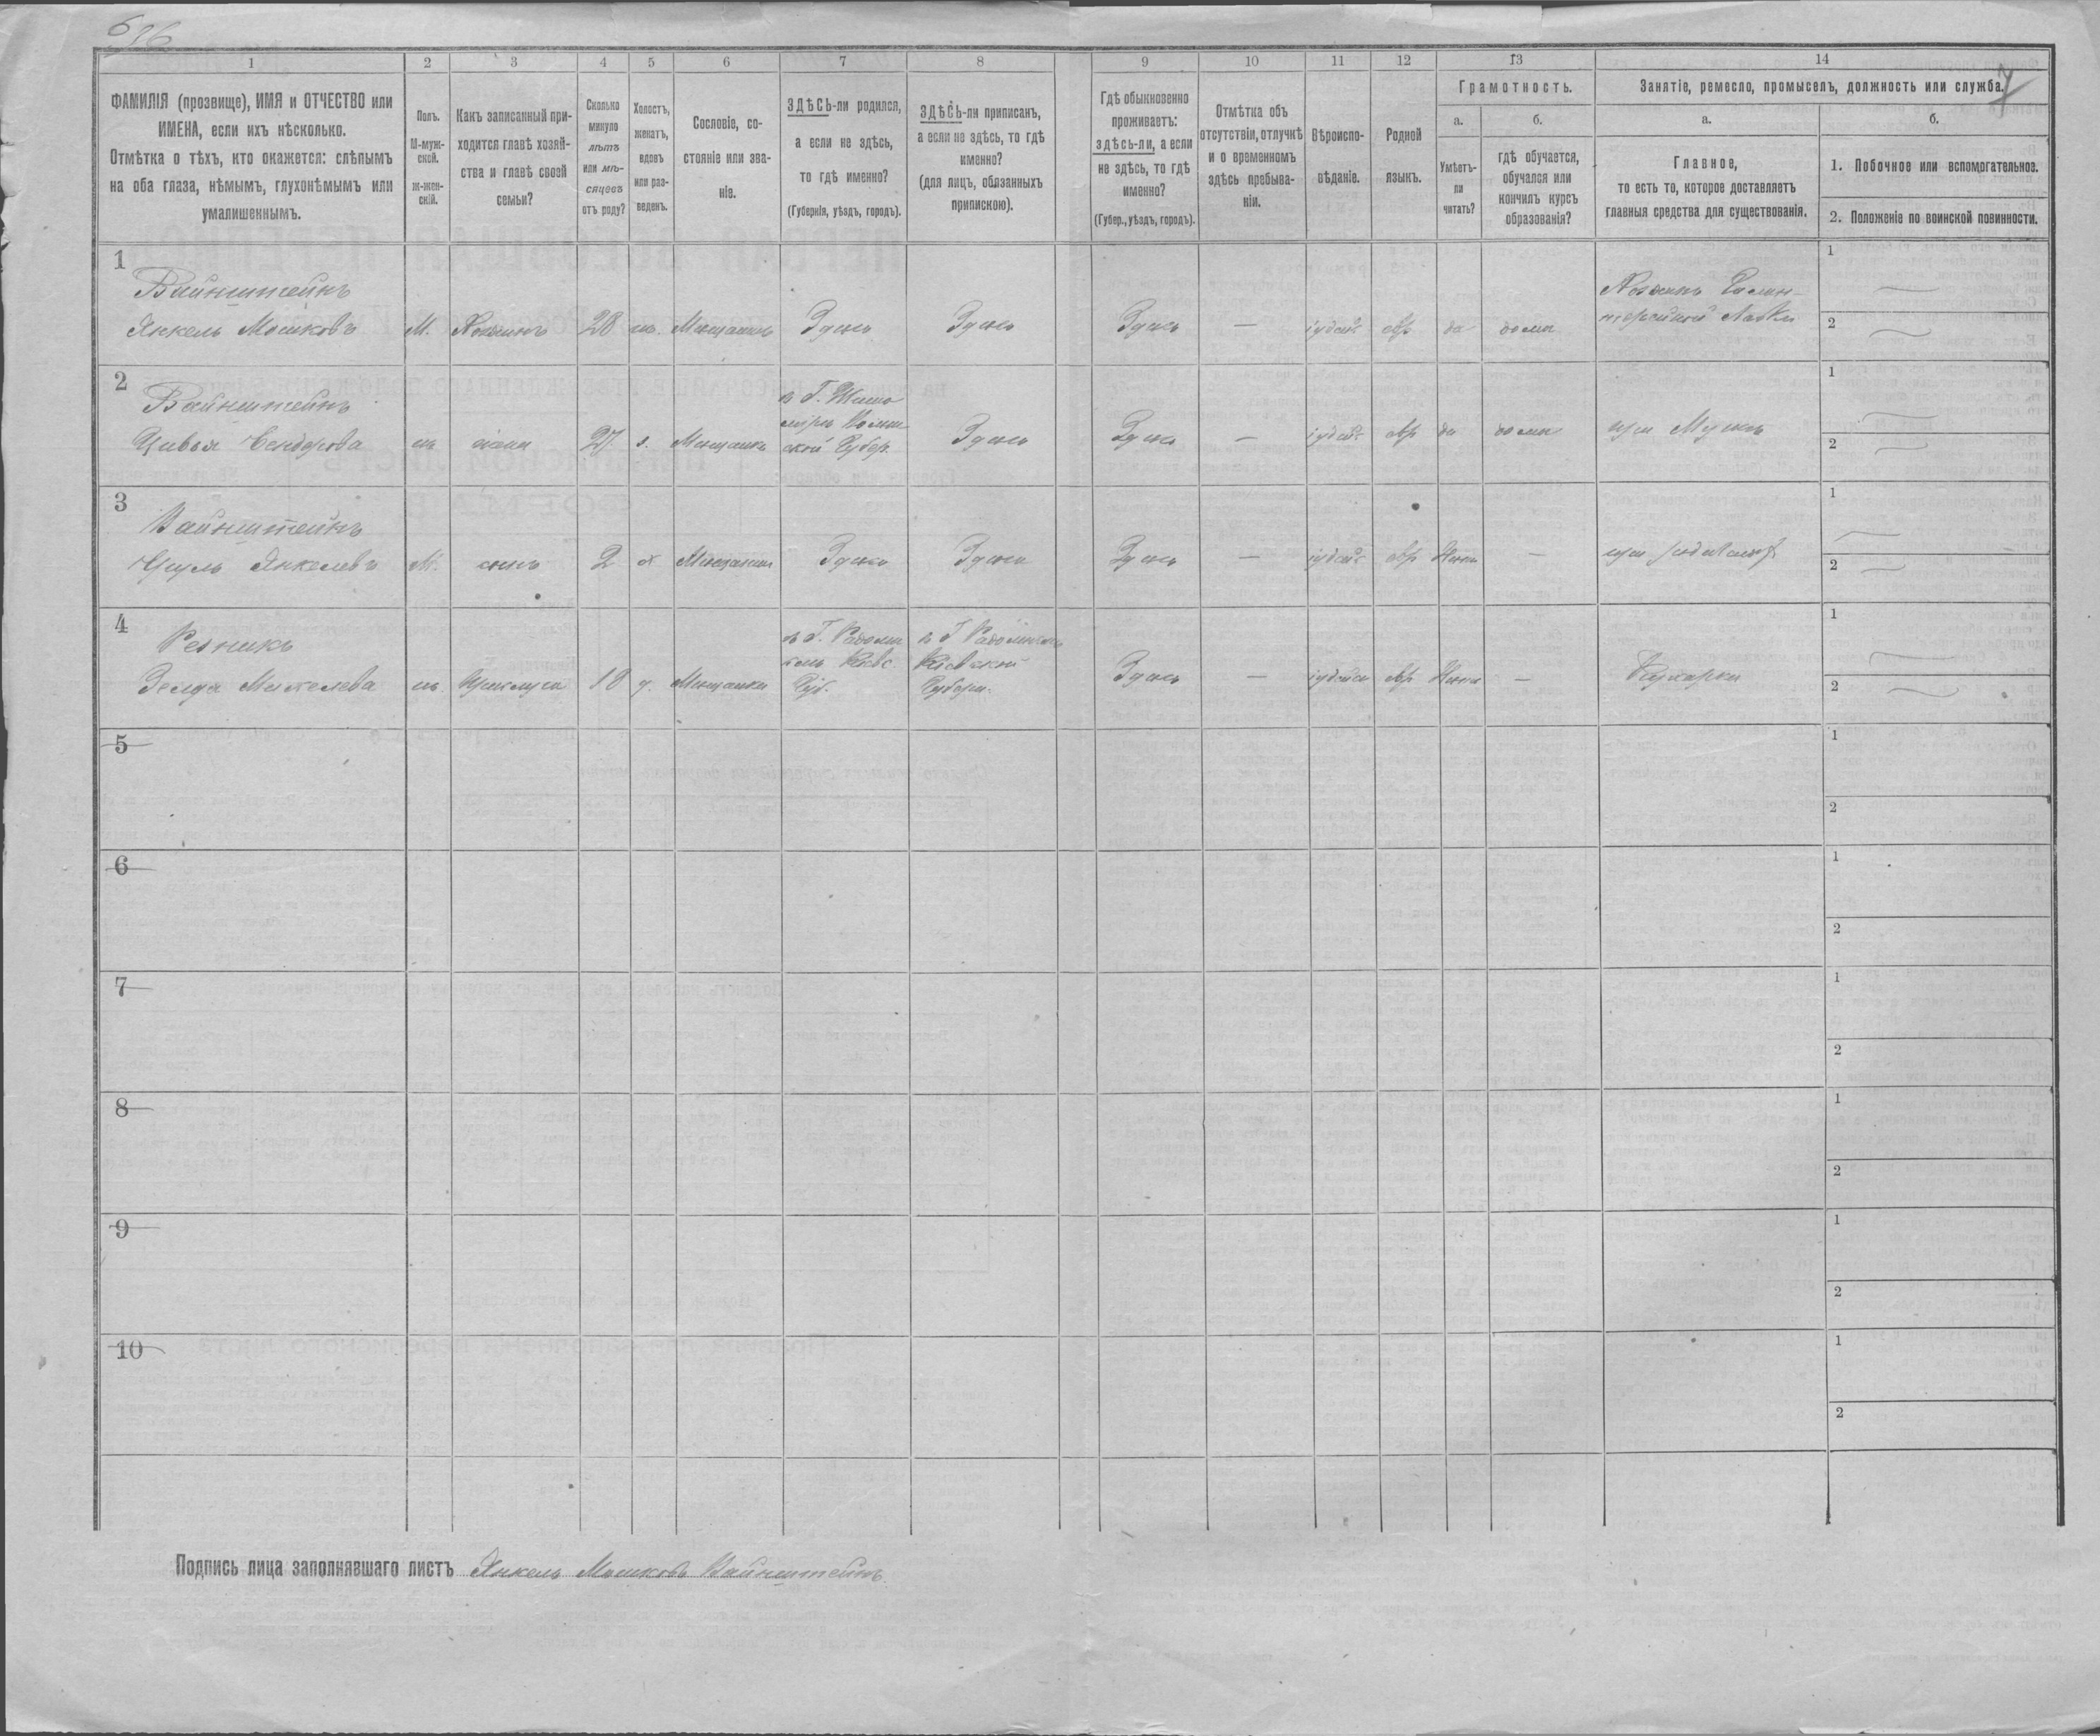 696
7
1 2 3 4 5 6 7 8 9 10 11 12 13 14
ФАМИЛІЯ (прозвище), ИМЯ и ОТЧЕСТВО или
ИМЕНА, если ихъ нѣсколько.
Отмѣтка о тѣхъ, кто окажется: слѣпымъ
на оба глаза, нѣмымъ, глухонѣмымъ или
умалишеннымъ.
Полъ.
М-муж-
ской.
ж-жен-
скій.
Какъ записанный при-
ходится главѣ хозяй-
ства и главѣ своей
семьи?
Сколько
минуло
лѣтъ
или мѣ-
сяцевъ
отъ роду?
Холостъ,
женатъ,
вдовъ
или раз-
веденъ.
Сословіе, со-
стояніе или зва-
ніе.
ЗДѢСЬ-ли родился,
а если не здѣсь,
то гдѣ именно?
(Губернія, уѣздъ, городъ).
ЗДѢСЬ-ли приписанъ,
а если не здѣсь, то гдѣ
именно?
(для лицъ, обязанныхъ
припискою).
Гдѣ обыкновенно
проживаетъ:
здѣсь-ли, а если
не здѣсь, то гдѣ
именно?
(Губер., уѣздъ, городъ).
Отмѣтка объ
отсутствіи, отлучкѣ
и о временномъ
здѣсь пребыва-
ніи.
Вѣроиспо-
вѣданіе.
Родной
языкъ.
Грамотность.
а.
Умѣетъ-
ли
читать?
б.
гдѣ обучается,
обучался или
кончилъ курсъ
образованія?
Занятіе, ремесло, промыселъ, должность или служба.
а.
Главное,
то есть то, которое доставляетъ
главныя средства для существованія.
б.
1. Побочное или вспомогательное.
2. Положеніе по воинской повинности.
1
Вайнштейнъ
Янкель Мошковъ М. Хозяинъ 28 ж. Мещанинъ Здѣсь Здѣсь Здѣсь — іудей евр да дома
Хозяинъ Галан-
терейной Лавки
1
2
2
Вайнштейнъ
Цивья ж жена 27 з. Мещанка
в Г. Жито
мірѣ Волын
ской Губер.
Здѣсь Здѣсь — іудей евр да дома при Мужѣ
1
2
3
Вайнштейнъ
Янкелевъ М. сынъ 2 х Мещанин Здѣсь Здѣсь Здѣсь — іудей евр —
1
2
4
Резникъ
Зелда ж. 18 д. Мещанка
в Г. Радомы
Кіевс.
Губ.
в Г Радомысль
Кіевской
Губерн.
Здѣсь — іудей евр — Кухарка
1
2
5
1
2
6
1
2
7
1
2
8
1
2
9
1
2
10
1
2
Подпись лица заполнявшаго листъ Янкель Мошковъ Вайнштейнъ